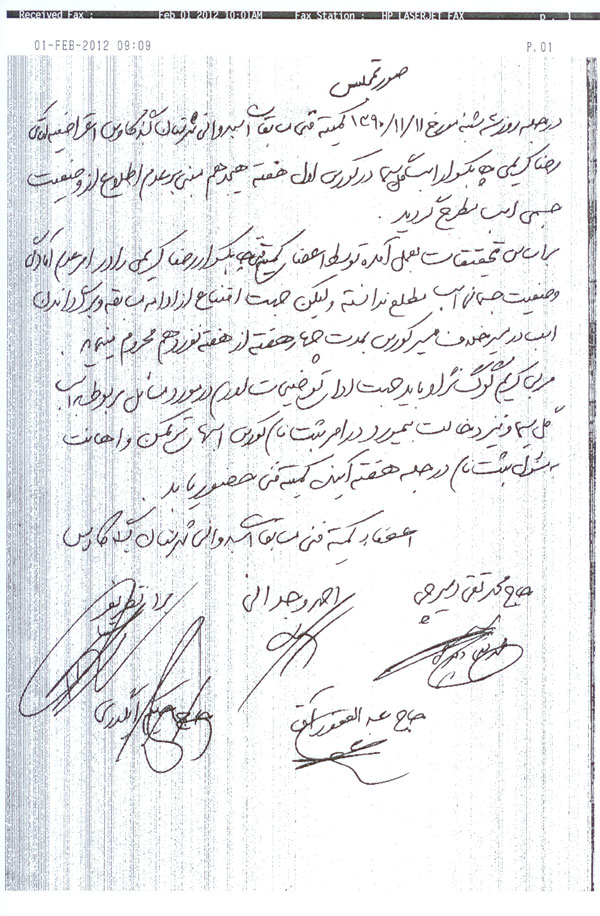 Received Fax : Feb 01 2012 10:01AM Fax Station : HP LASERJET FAX p. 1
01-FEB-2012 09:09 P.01
صورتجلسه
در جلسه روز سه شنبه مورخ ۱۳۹۰/۱۱/۱۱ کمیته فنی مسابقات اسبدوانی شهرستان گنبد کاوس اعتراضیه آقای
رضا کریمی چابکسوار اسب گل سیما در کورس اول هفته هیجدهم مبنی بر عدم اطلاع از وضعیت
جسمی اسب مطرح گردید .
بر اساس تحقیقات بعمل آمده توسط اعضاء کمیته فنی چابکسوار رضا کریمی را در امر عدم آمادگی
وضعیت جسمانی اسب مطلع ندانسته ولیکن جهت امتناع از ادامه مسابقه و برگرداندن
اسب در مسیر خلاف مسیر کورس بمدت چهار هفته از هفته نوزدهم محروم مینماید .
مربی کریم گوگ نژاد باید جهت ادای توضیحات لازم در مورد مسائل مربوطه اسب
گل سیما و نیز دخالت بیمورد در امر ثبت نام کورس اسبهای ترکمن و اهانت
به مسئول ثبت نام در جلسه هفته آینده کمیته فنی حضور یابد .
اعضاء کمیته فنی مسابقات اسبدوانی شهرستان گنبد کاوس
حاج محمد تقی احمد وجدانی مراد
حاج عبدالغفور حاج